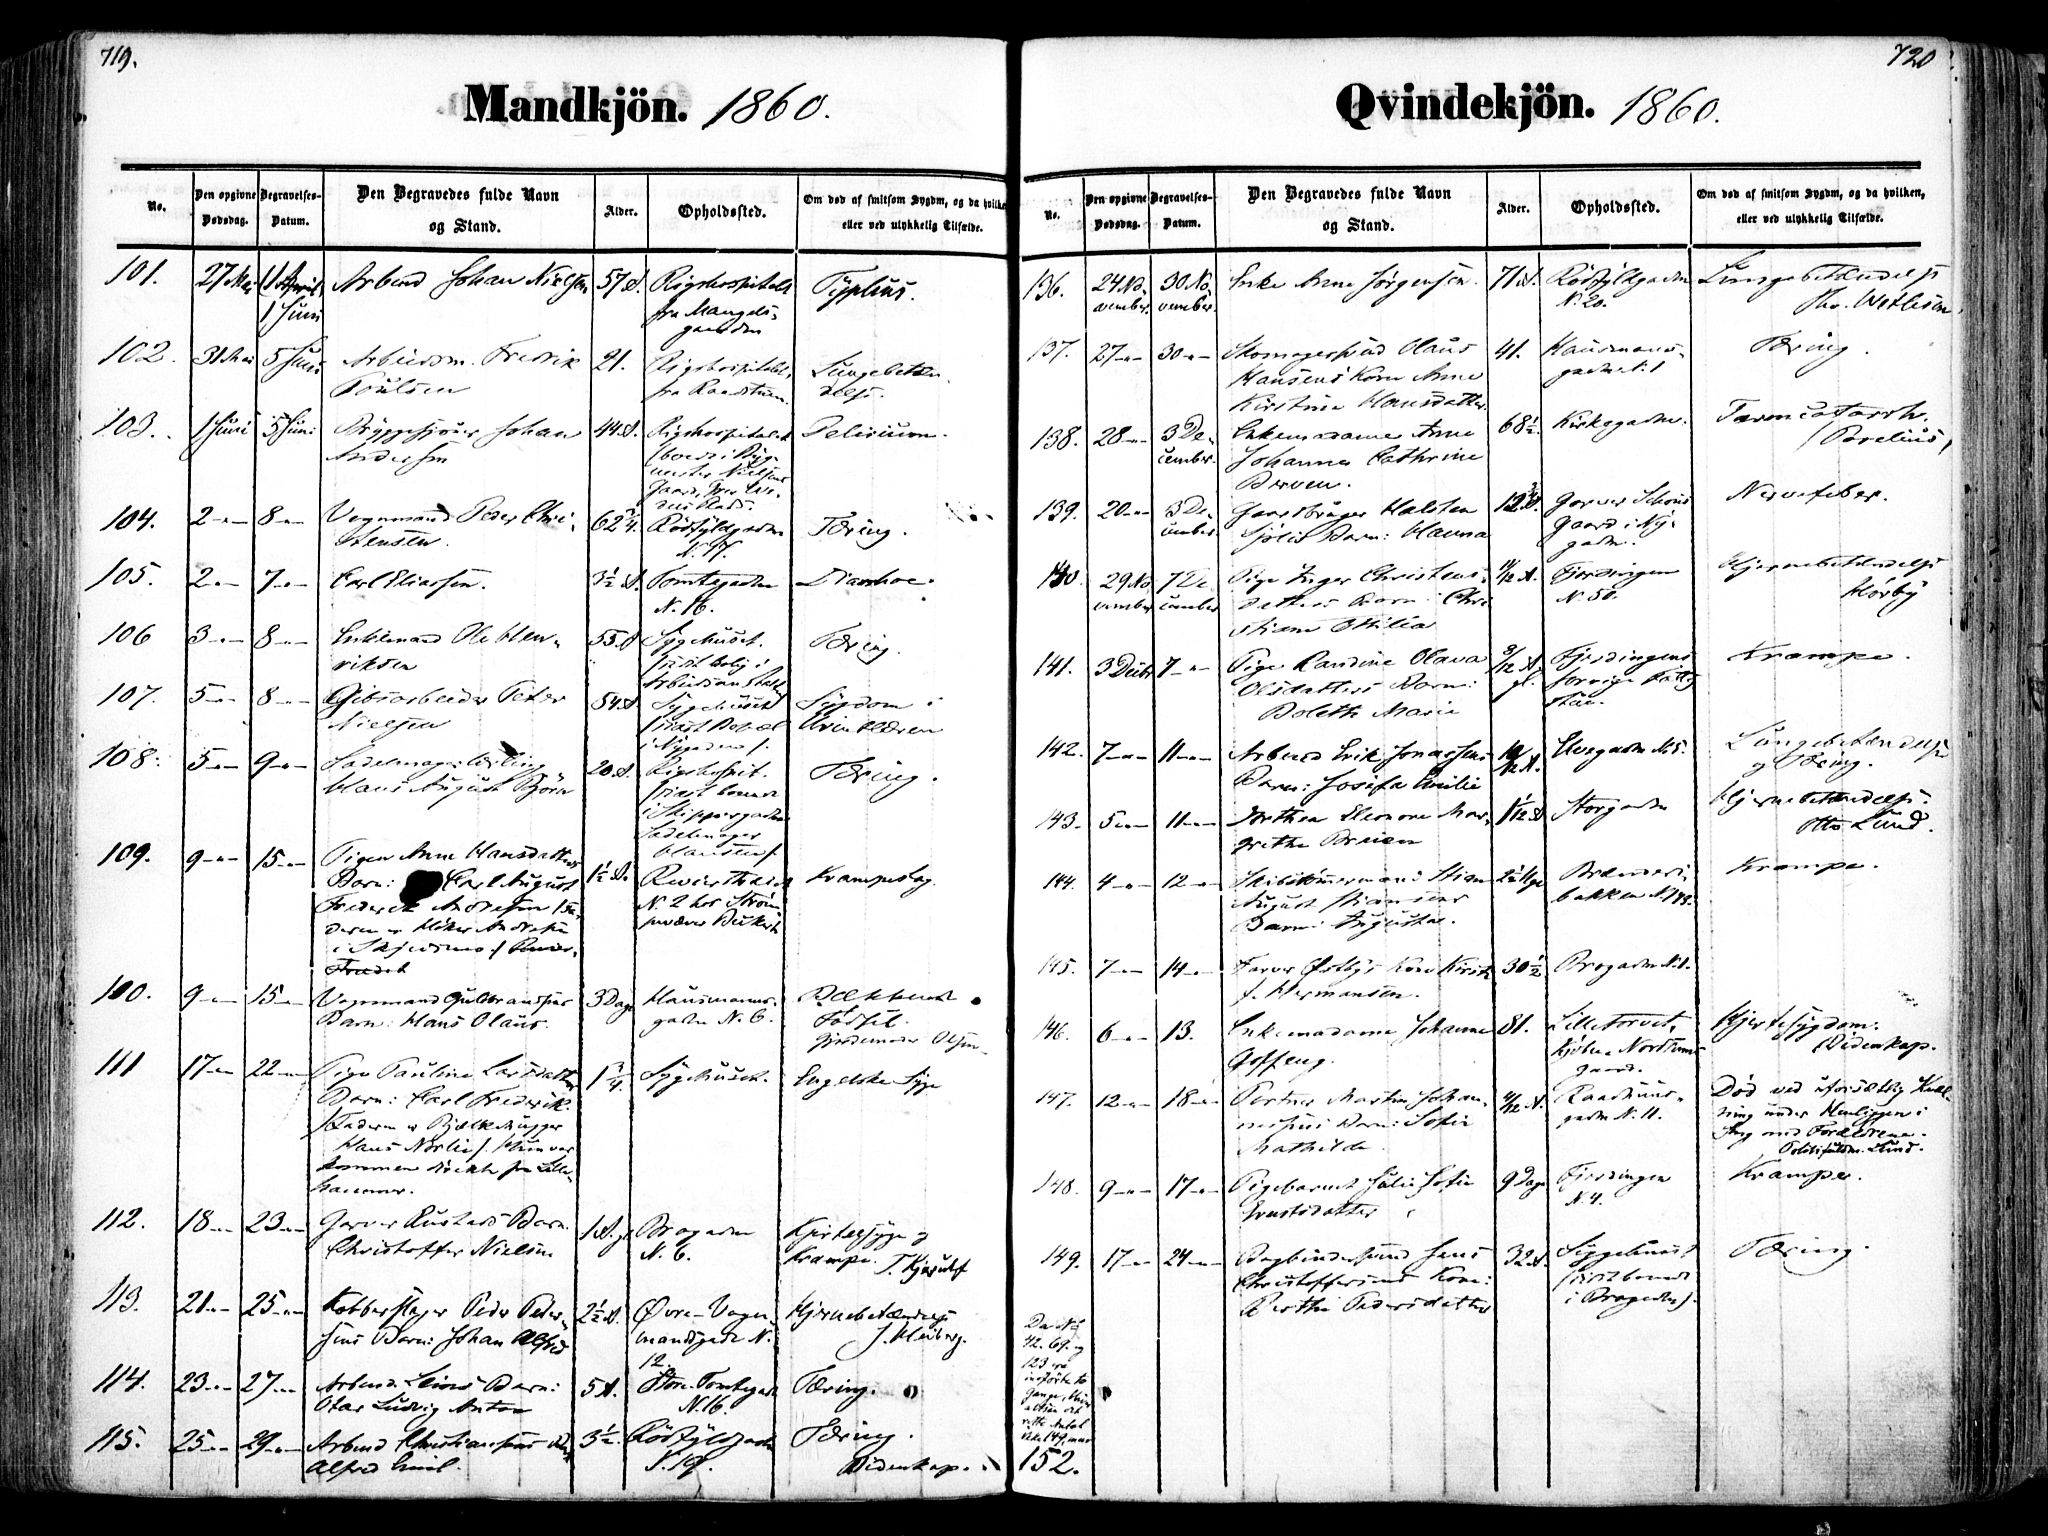 719.
Mandkjön. 1860.
No.
Den opgivne Dødsdag.
Begravelses-Datum.
Den Begravedes fulde Navn og Stand.
Alder.
Opholdssted.
Om død af smitsom Sygdm, og da hvilken, eller ved ulykkelig Tilfælde.
101. 27 Mai 1 Juni Arbeid Johan Nielsen 57 A. Rigshospitalet fra Mangelsgaarden Typhus.
102. 31 Mai 5 Juni Arbeidsm. Fredrik Poulsen 21. Rigshospitalet, fra Raadstuen. Lungebetændelse.
103. 1 Juni 5 Juni Bryggesjouer Johan Andersen 44 A. Rigshospitalet Delirium.
104. 2-"- 8-"- Vognmand Peder Christensen. 62 Rødfyldgaden N. 47. Tæring.
105. 2-"- 7-"- Carl Eliassen. 3½ A. Tomtegaden N. 16. Diarrhoe.
106 3-"- 8-"- Enkemand Ole Henriksen 55 A Sygehuset. Tæring.
107. 5-"- 8-"- Gibsarbeider Peter Nielsen 54 A Sygehuset Sygdom i Urinblæren
108. 5-"- 9-"- Sadelmagerlærling Hans August Björn 20 A. Rigshospit. i Skippergaden Sadelmager Hansen). Tæring.
109. 9-"- 15-"- Pigen Anne Hansdatters Barn: Carl August Frederik Andersen 1½ A. N. 2 hos Krampeslag.
110. 9-"- 15-"- Vognmand Gulbransens Barn: Hans Olaus. 3 Dage Hausmannsgaden N. 6. Gjordemoder Olsen
111 17-"- 22-"- Pige Pauline Larsdatters Barn: Carl Frederik. (Faderen er Bjælkehugger Hans Norlie). kommen direkte fra Lillehammer. 1 Sygehuset. Engelske Syge
112. 18-"- 23-"- Garver Rustads Barn: Christoffer Nielsen 1 A. gl. Brogaden N. 6. Kjertelsyge og Krampe. T. Kjerulf
113. 21-"- 25-"- Kobberslager Peder Pedersens Barn: Johan Alfred 2½ A. Øvre Vognmandsgade N. 12. Hjernebetændelse J. Heiberg.
114. 23-"- 27-"- Arbeid. Barn: Otar Ludvig Anton 5 A. Store Tomtegade N. 16. Tæring.
115. 25-"- 29-"- Arbeid Christiansens Barn Alfred Emil. 3½. Rødfyldgaden N. 19. Tæring. Bidenkap.
720
Qvindekjön. 1860.
No.
Den opgivne Dødsdag.
Begravelses-Datum.
Den Begravedes fulde Navn og Stand.
Alder.
Opholdssted.
Om død af smitsom Sygdm, og da hvilken, eller ved ulykkelig Tilfælde.
136. 24 November. 30 November. Enke Anne Jørgensen. 71 A. Rødfyldgaden N. 20. Lungebetændelse
137. 27-"- 30-"- Skomagersvend Olaus Hansens Kone Anne Kirstine Hansdatter. 41. Hausmannsgaden N. 1 Tæring.
138. 28-"- 3 December. Enkemadame Anne Johanne Cathrine Berven. 68½. Kirkegaden. Tarmcatarrh.
139. 20-"- 3 December Gaardbruger Halsten Sjølis Barn: Hanna 12 A. Garver Schous Gaard i Nygaden. Nervefeber.
140. 29 November 7 December Pige Inger Christensdatters Barn: Christiane Ottilia 11/12 A. Fjerdingen N. 50. Hjernebetændelse Hörbÿ
141. 3 Decbr 7-"- Pige Randine Olava Olsdatters Barn: Boleth Marie 3/12 A. gl. Fjerdingens Krampe.
142. 7-"- 11-"- Arbeid Erik Jonassens Barn: Josefa Emilie 10/12 A. Elvegaden N. 5. Lungebetændelse og Tæring.
143. 5-"- 11-"- Dorthea Eleonore Margrethe Bruien 1 1/12 A Storgaden Hjernebetændelse. Otto Lund.
144. 4-"- 12-"- Skibstømmermand Stian August Stiansens Barn: Augusta. 2½ Uge Brænderibakken Krampe.
145. 7-"- 14-"- Farver Østbys Kone f. Hermansen. 30½ Brogaden N. 1.
146. 6-"- 13. Enkemadame Johanne Goffeng. 81. Lilletorvet, Kjøbm. Nordbyes gaard. Hjertesygdom. Bidenkap.
147. 12-"- 18-"- Portner Martin Johannesens Barn: Sofie Mathilde. 4/12 A. Raadhuusgaden N. 11. Død ved uforsætlig Kvælning under Henliggen i Seng med Forældrene. Politifuldm. Lund.
148. 9-"- 17-"- Pigebarnet Julie Sofie Ernstsdatter 9 Dage Fjerdingen N. 4. Krampe.
149. 17-"- 24-"- Bogbindersvend Jens Christoffersens Kone: Berthe Pedersdatter 32 A. Sygehuset (sidst boende i Brogaden). Tæring.
Da No 42. 69. og 123 ere indførte to Gange, bliver altsaa det rette Antal ikke 149, men
152.